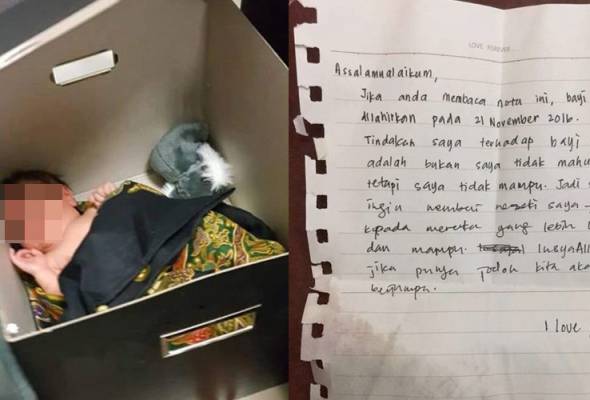 LOVE FOREVER
Assalamualaikum,
Jika anda membaca nota ini, bayi
dilahirkan pada 21 November 2016.
Tindakan saya terhadap bayi
adalah bukan saya tidak mahu
tetapi saya tidak mampu. Jadi
ingin memberi saya
kepada mereka yang lebih
dan mampu. InsyaAll
jika punya jodoh kita aka
berjumpa.
I love